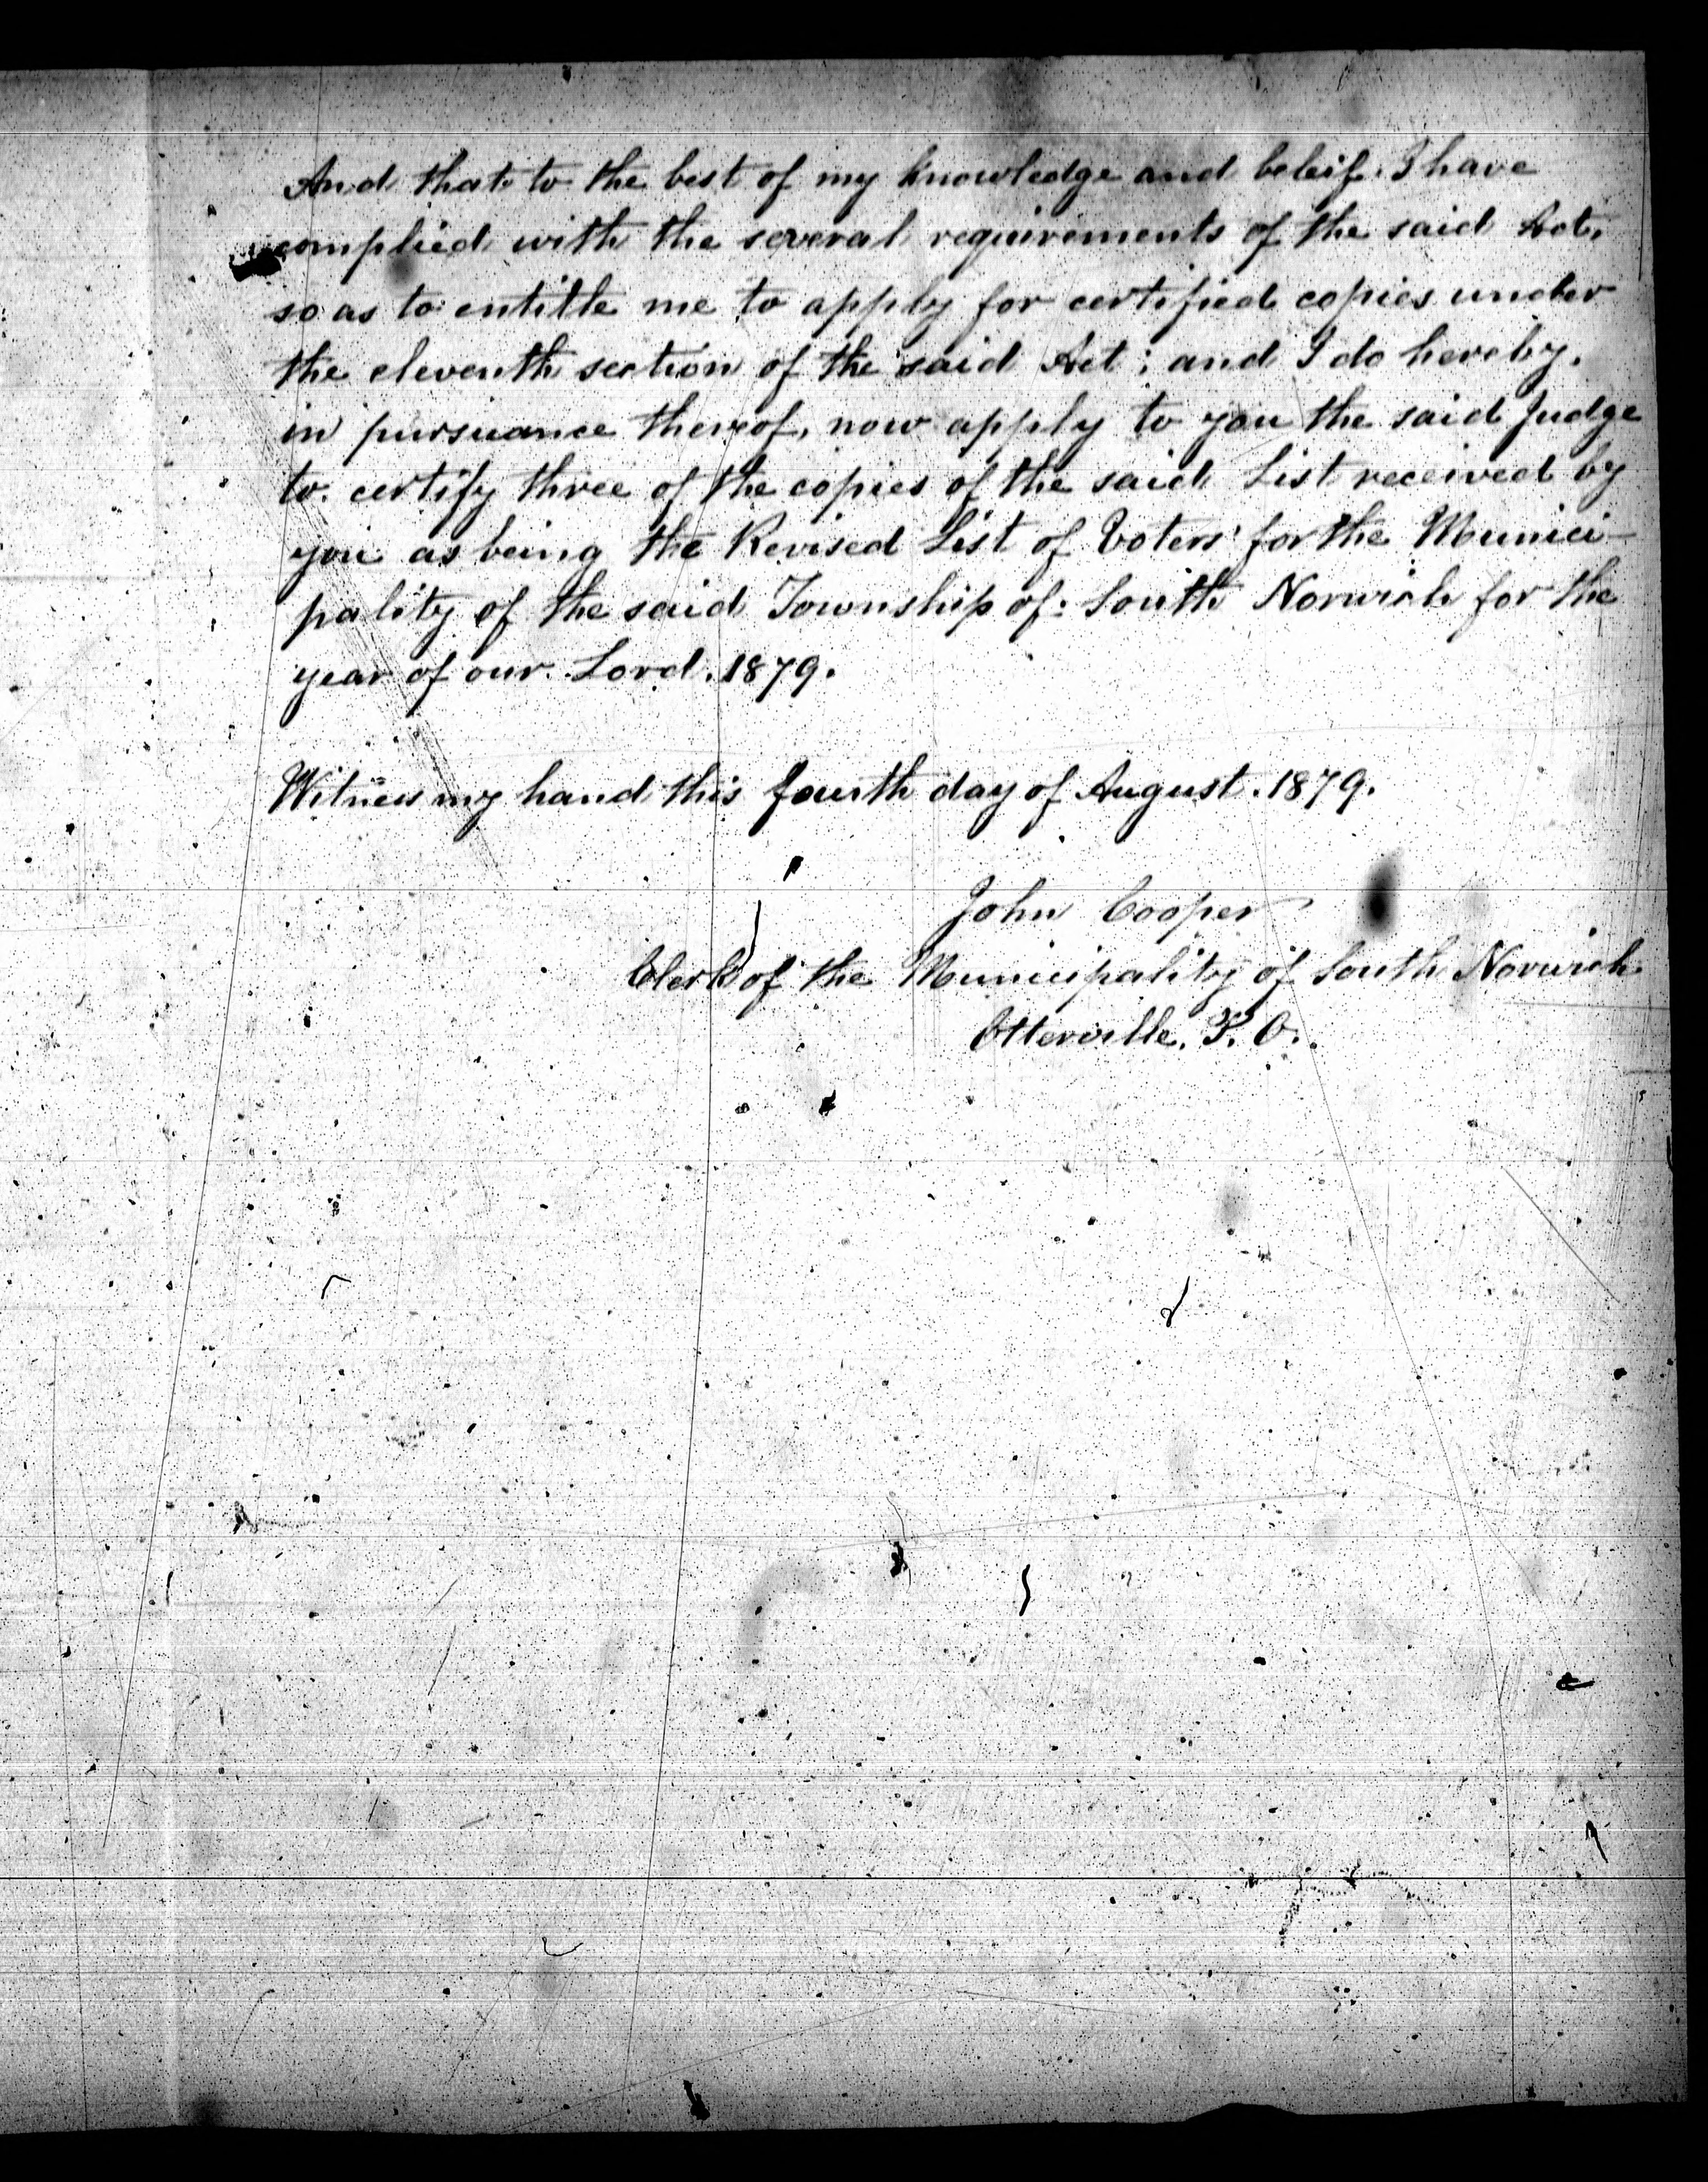 And that to the best of my knowledge and beleif. I have
complied with the several requirements of the said Act,
so as to entitle me to apply for certified copies under
the eleventh section of the said Act; and I do hereby,
in pursuance thereof, now apply to you the said Judge
to certify three of the copies of the said List received by
you as being the Revised List of Voters' for the Munici-
pality of the said Township of: South Norwich for the
year of our Lord. 1879.
Witness my hand this fourth day of August. 1879.
John Cooper
Clerk of the Municipality of South Norwich
Otterville. P. O.